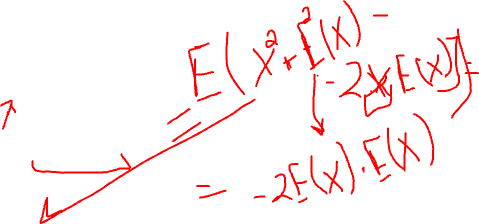 = E(x² + E²(x) -
- 2xE(x)) =
= -2E(x)·E(x)